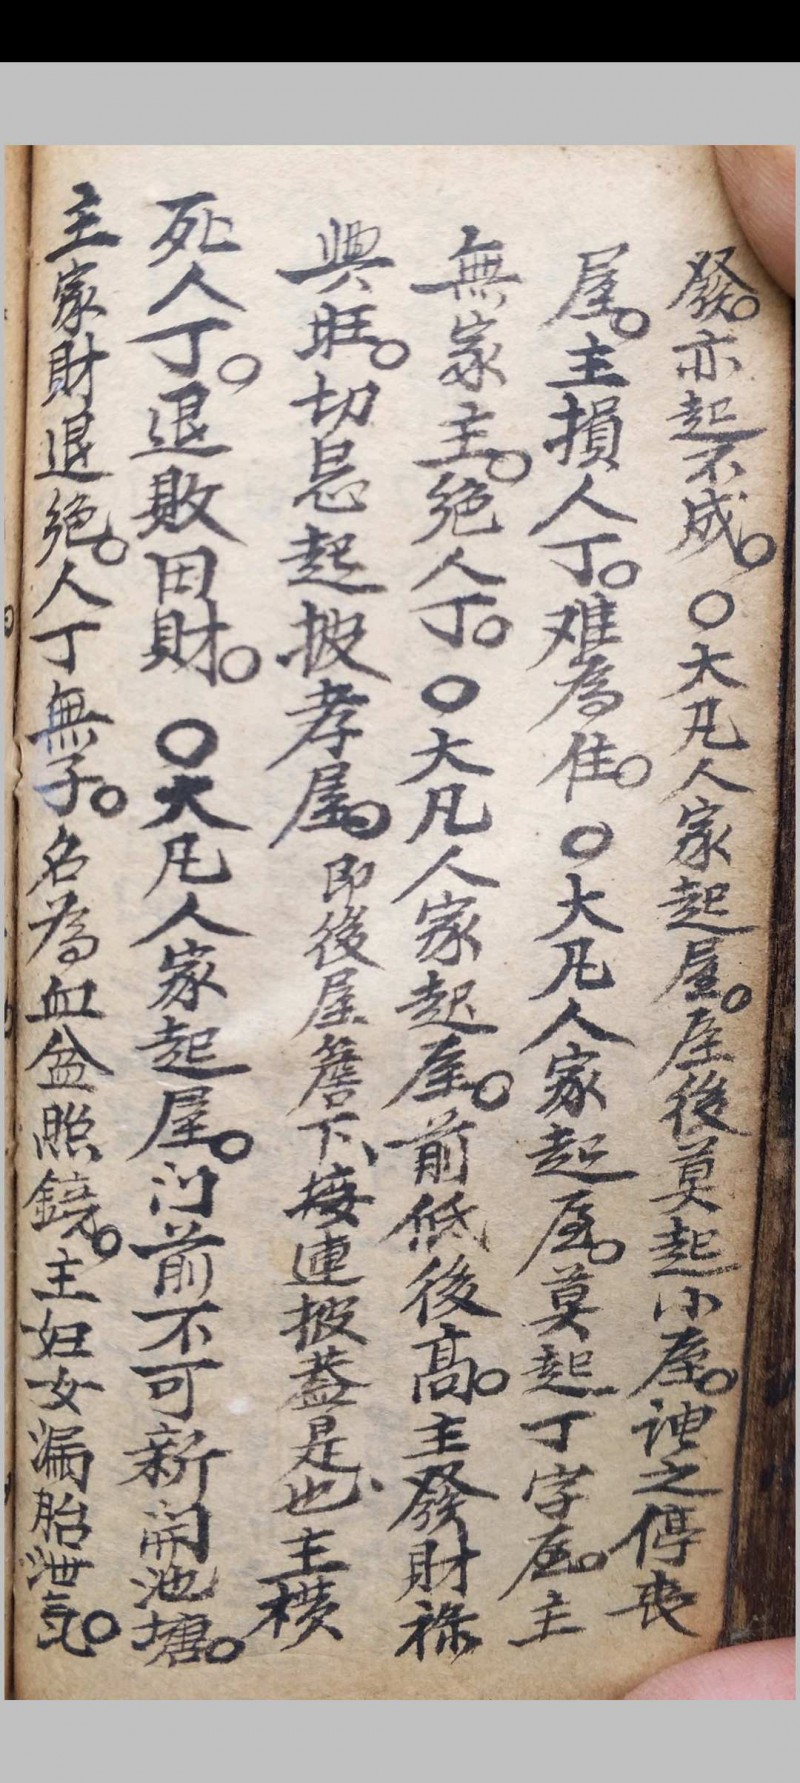 發。亦起不成。○大凡人家起屋。屋後莫起小屋。謂之停丧
屋。主損人丁。难為住。○大凡人家起屋。莫起丁字屋。主
無家主。绝人丁。○大凡人家起屋。前低後高。主發財祿
興旺。切忌起披孝屋。即後屋簷下、接連披蓋是也、主横
死人丁。退敗田財。○大凡人家起屋。门前不可新開池塘。
主家財退绝。人丁無子。名為血盆照鏡。主妇女漏胎泄氣。